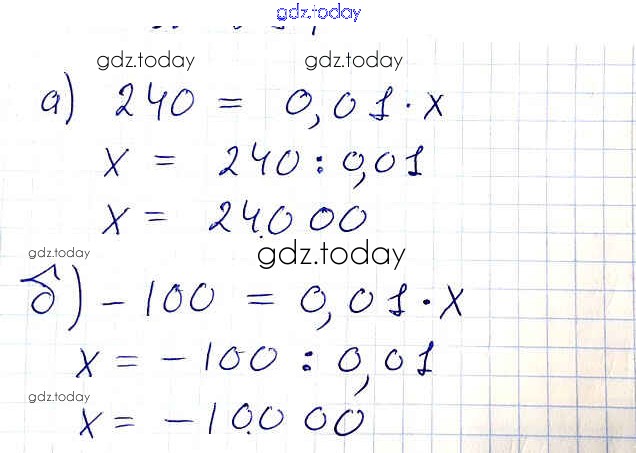 gdz.today
gdz.today gdz.today
а) 240 = 0,01 · x
x = 240 : 0,01
x = 24000
gdz.today gdz.today
б) - 100 = 0,01 · x
x = - 100 : 0,01
gdz.today
x = - 10000